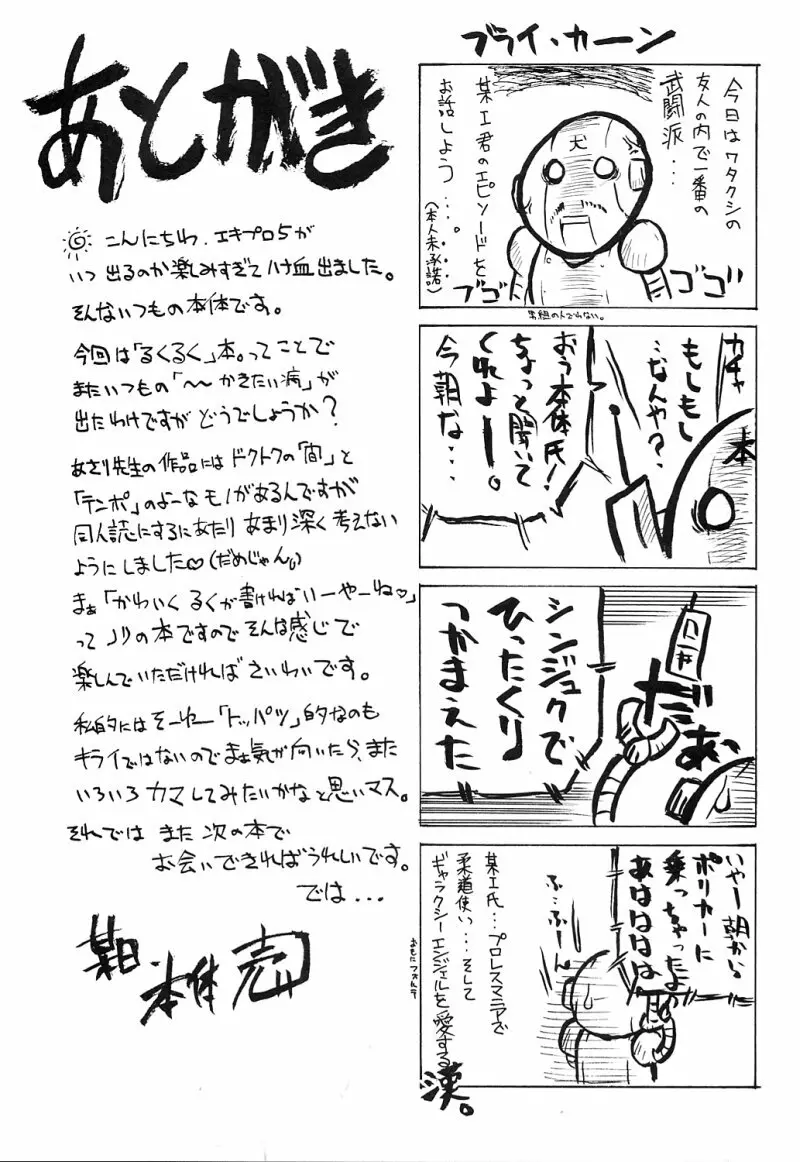 ブライ・カーン
今日はワタクシの
友人の内で一番の
武闘派…
某工君のエピソードを
お話しよう…。
(本人未承諾)
ゴゴ
ブゴ
犬
男組の人でわない。
カチャ
もしもし
…なんや?
本
おう本体氏!
ちょっと聞いて
くれよー。
今朝な…
シンジュクで
ひったくり
つかまえた
だぁ
いやー朝から
ポリカーに
乗っちゃったよ
あはははは
ふ…ふーん
某工氏…プロレスマニアで
柔道使い…そして
ギャラクシーエンジェルを愛する
漢。
おもにフォルテ
あとがき
こんにちわ、エキプロ5が
いつ出るのか楽しみすぎてハナ血出ました。
そんないつもの本体です。
今回は「るくるく」本。ってことで
またいつもの「〜〜かきたい病」が
出たわけですがどうでしょうか?
あさり先生の作品にはドクトクの「間」と
「テンポ」のよーなモノがあるんですが
同人読にするにあたりあまり深く考えない
ようにしました♡(だめじゃん。)
まぁ「かわいくるくが書ければいーやーね♡」
ってノリの本ですのでそんな感じで
楽しんでいただければさいわいです。
私的にはそーゆー「トッパツ」的なのも
キライではないのでまぁ気が向いたら、また
いろいろカマしてみたいかなと思いマス。
それでは また 次の本で
お会いできればうれしいです。
では…
本体 売